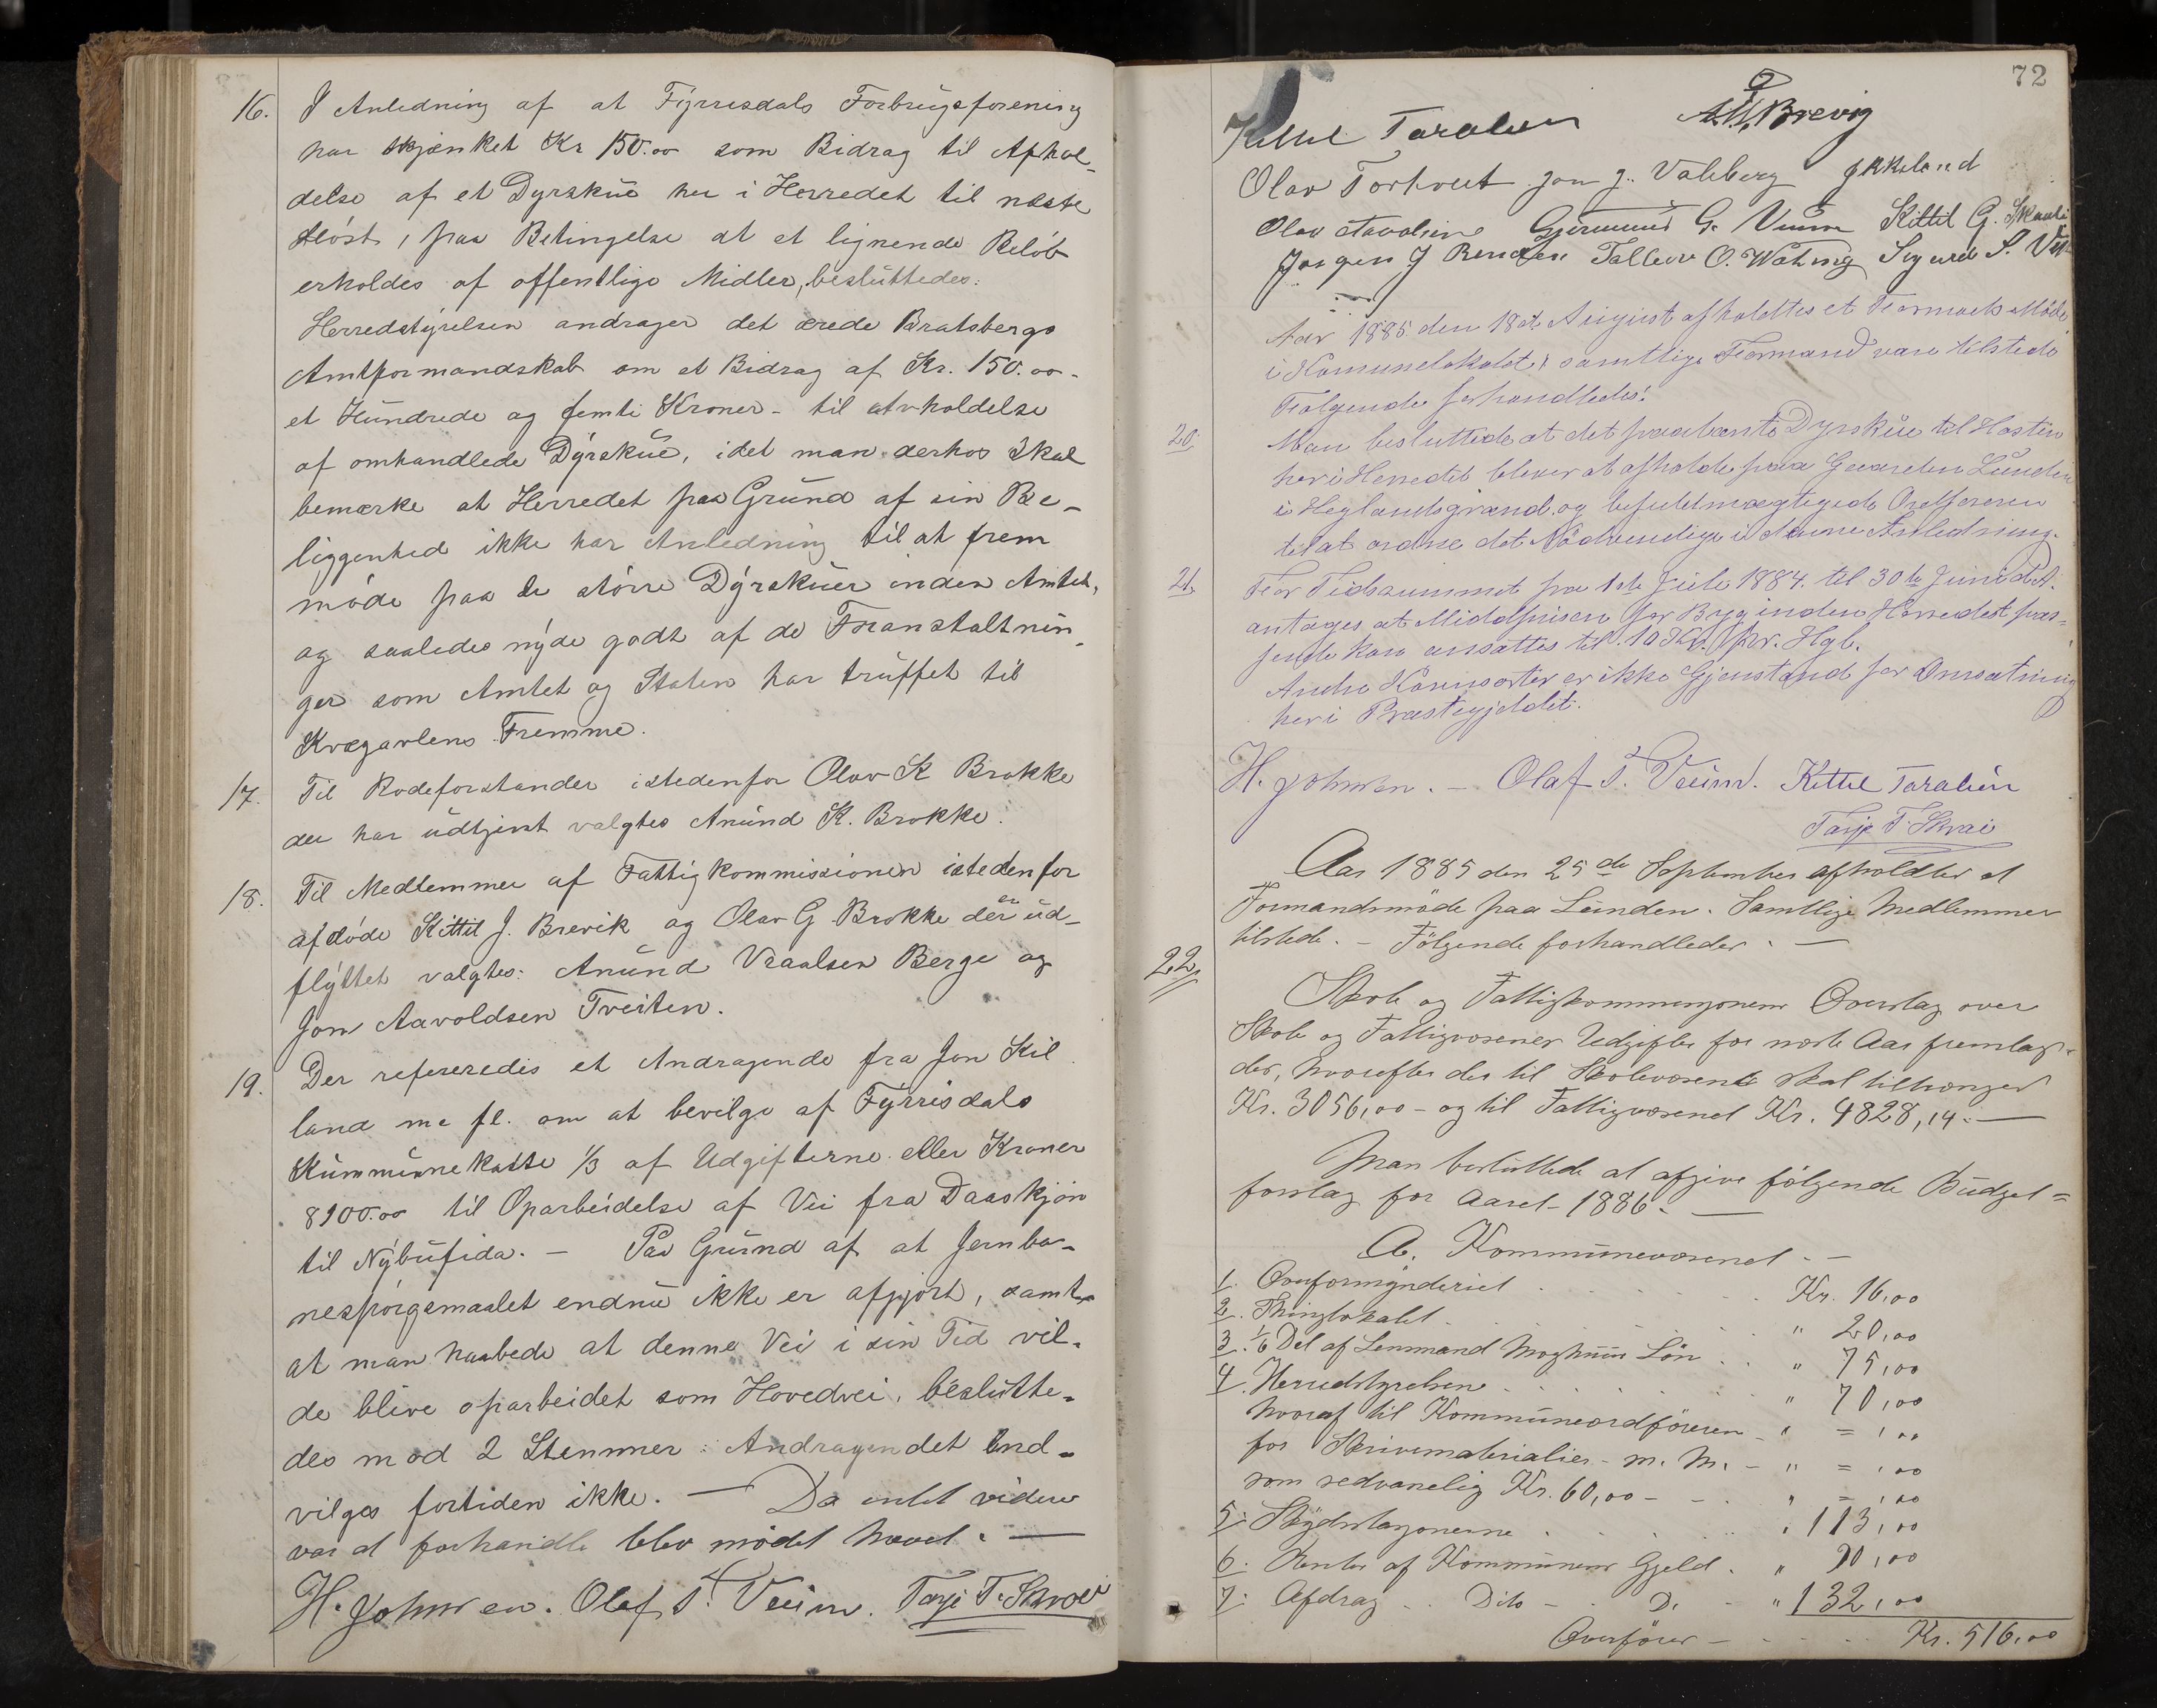 16. I Anledning af at Fyrrisdals Forbrugsforening
har skjænket Kr 150.00 som Bidrag til Aphol-
delse af et Dyrskue her i Herredet til næste
Høst, paa Betingelse at et lignende Beløb
erholdes af offentlige Midler, besluttedes:
Herredstyrelsen andrager det ærede Bratsbergs
Amtformandskab om et Bidrag af Kr. 150.00-
et Hundrede og femti Kroner - til atvholdelse
af omhandlede Dyrskue, idet man derhos skal
bemærke at Herredet paa Grund af sin Be-
liggenhed ikke har Anledning til at frem
møde paa de større Dyrskuer inden Amtet,
og saaledes nyde godt af de Foranstaltnin-
ger som Amtet og Staten har truffet til
Kvægavlens Fremme.
17. Til Rodeforstander istedenfor Olav K Brokke
der har udtjent valgtes Anund K. Brokke.
18. Til Medlemmer af Fattigkommissionen istedenfor
afdøde Kittil J. Brevik og Olav G Brokke der er ud-
flyttet valgtes: Anund Vraalsen Berge og
Jon Aavoldsen Tveiten.
19. Der refereredes et Andragende fra Jon Kil
land me fl. om at bevilge af Fyrrisdals
Kummunekasse 1/3 af Udgifterne eller Kroner
8900.00 til Oparbeidelse af Vei fra Daaskjøn
til Nybufida. - Paa Grund af at Jernba-
nespørgsmaalet endnu ikke er afgjort, samt
at man haabede at denne Vei i sin Tid vil-
de blive oparbeidet som Hovedvei, beslutte-
des mod 2 Stemmer: Andragendet ind-
vilges fortiden ikke. — Da intet videre
var at forhandle blev mødet hævet. —
H. Johnsen. Olaf T. Veum. Tarje T. Skraei
72
Kittil Taraldsen A. H. Brevig
Olav Torhveit Jon J. Valeberg
Olav Aavoldsen Gjermund G. Veum Kittil G. Skaali
Jørgen J Tallev O. Sigurd S.
Aar 1885 den 18de August afholdtes et Formands Møde
i Komunelokalet, samtlige Formænd vare tilstede
Følgende forhandledes:
20. Man besluttede at det paatænkte Dyrskue til Høsten
her i Herredet bliver at afholde paa Gaarden Lunden
i Heglandsgrænd, og befuldmægtigede Ordføreren
til at ordne det Nødvendige i denne Anledning.
21. For Tidsrummet fra 1ste Juli 1884 til 30te Juni d.A.
antages at Middelprisen for Byg inden Herredet pas-
sende kan ansættes til 10 Kr. pr. Hgl.
Andre Kornsorter er ikke Gjenstand for Omsætning
her i Præstegjeldet.
H. Johnsen. - Olaf T. Veum. Kittil Taraldsen
Tarje T. Skrai
Aar 1885 den 25de September afholdtes et
Formandsmøde paa Lunden. Samtlige Medlemmer
tilstede. - Følgende forhandledes. —
22. Skole og Fattigkommissionens Overslag over
Skole og Fattigvæsenets Udgifter for næste Aar fremlag-
des, hvorefter der til Skolevæsenet skal tiltrænges
Kr. 3056,00 - og til Fattigvæsenet Kr. 4828,14. —
Man besluttede at afgive følgende Budget=
forslag for Aaret 1886. —
A. Kommunevæsenet. —
1. Overformynderiet . . . Kr. 16,00
2. Thinglokalet . . . " 20,00
3. 1/6 Del af Lensmand Moghuus Løn . . " 75,00
4. Herredstyrelsen . . . " 70,00
hvoraf til Kommuneordføreren - " = ,00
for Skrivematerialier - m. M. - " = ,00
som sedvanelig Kr. 60,00 - - " = ,00
5. Skydsstationerne . . . " 113,00
6. Renter af Kommunens Gjeld . " 90,00
7. Afdrag . . Dito - . D. - " 132,00
Overføres - - . . . Kr. 516,00